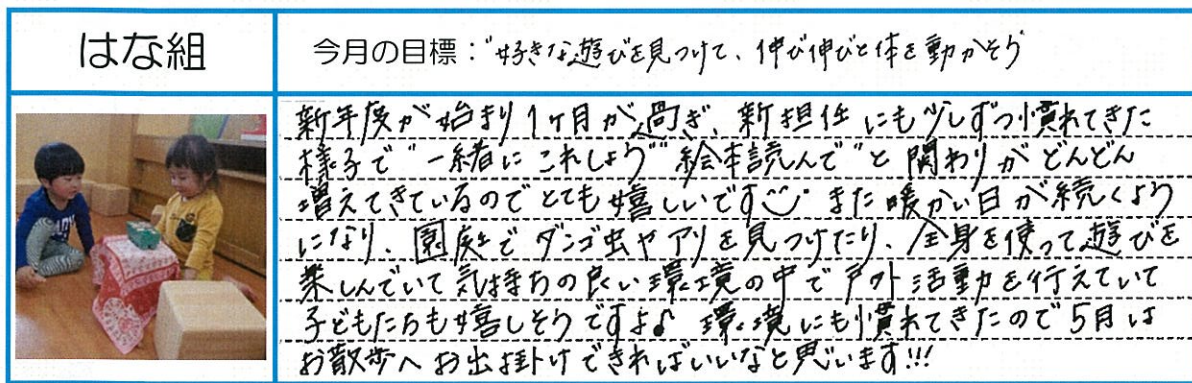 はな組
今月の目標:"好きな遊びを見つけて、伸び伸びと体を動かそう
新年度が始まり1ヶ月が過ぎ、新担任にも少しずつ慣れてきた
様子で"一緒にこれしよう""絵本読んで"と関わりがどんどん
増えてきているのでとても嬉しいです また暖かい日が続くよう
になり、園庭でダンゴ虫やアリを見つけたり、全身を使って遊びを
楽しんでいて気持ちの良い環境の中で戸外活動を行えていて
子どもたちも嬉しそうですよ♪ 環境にも慣れてきたので5月は
お散歩へお出掛けできればいいなと思います!!!